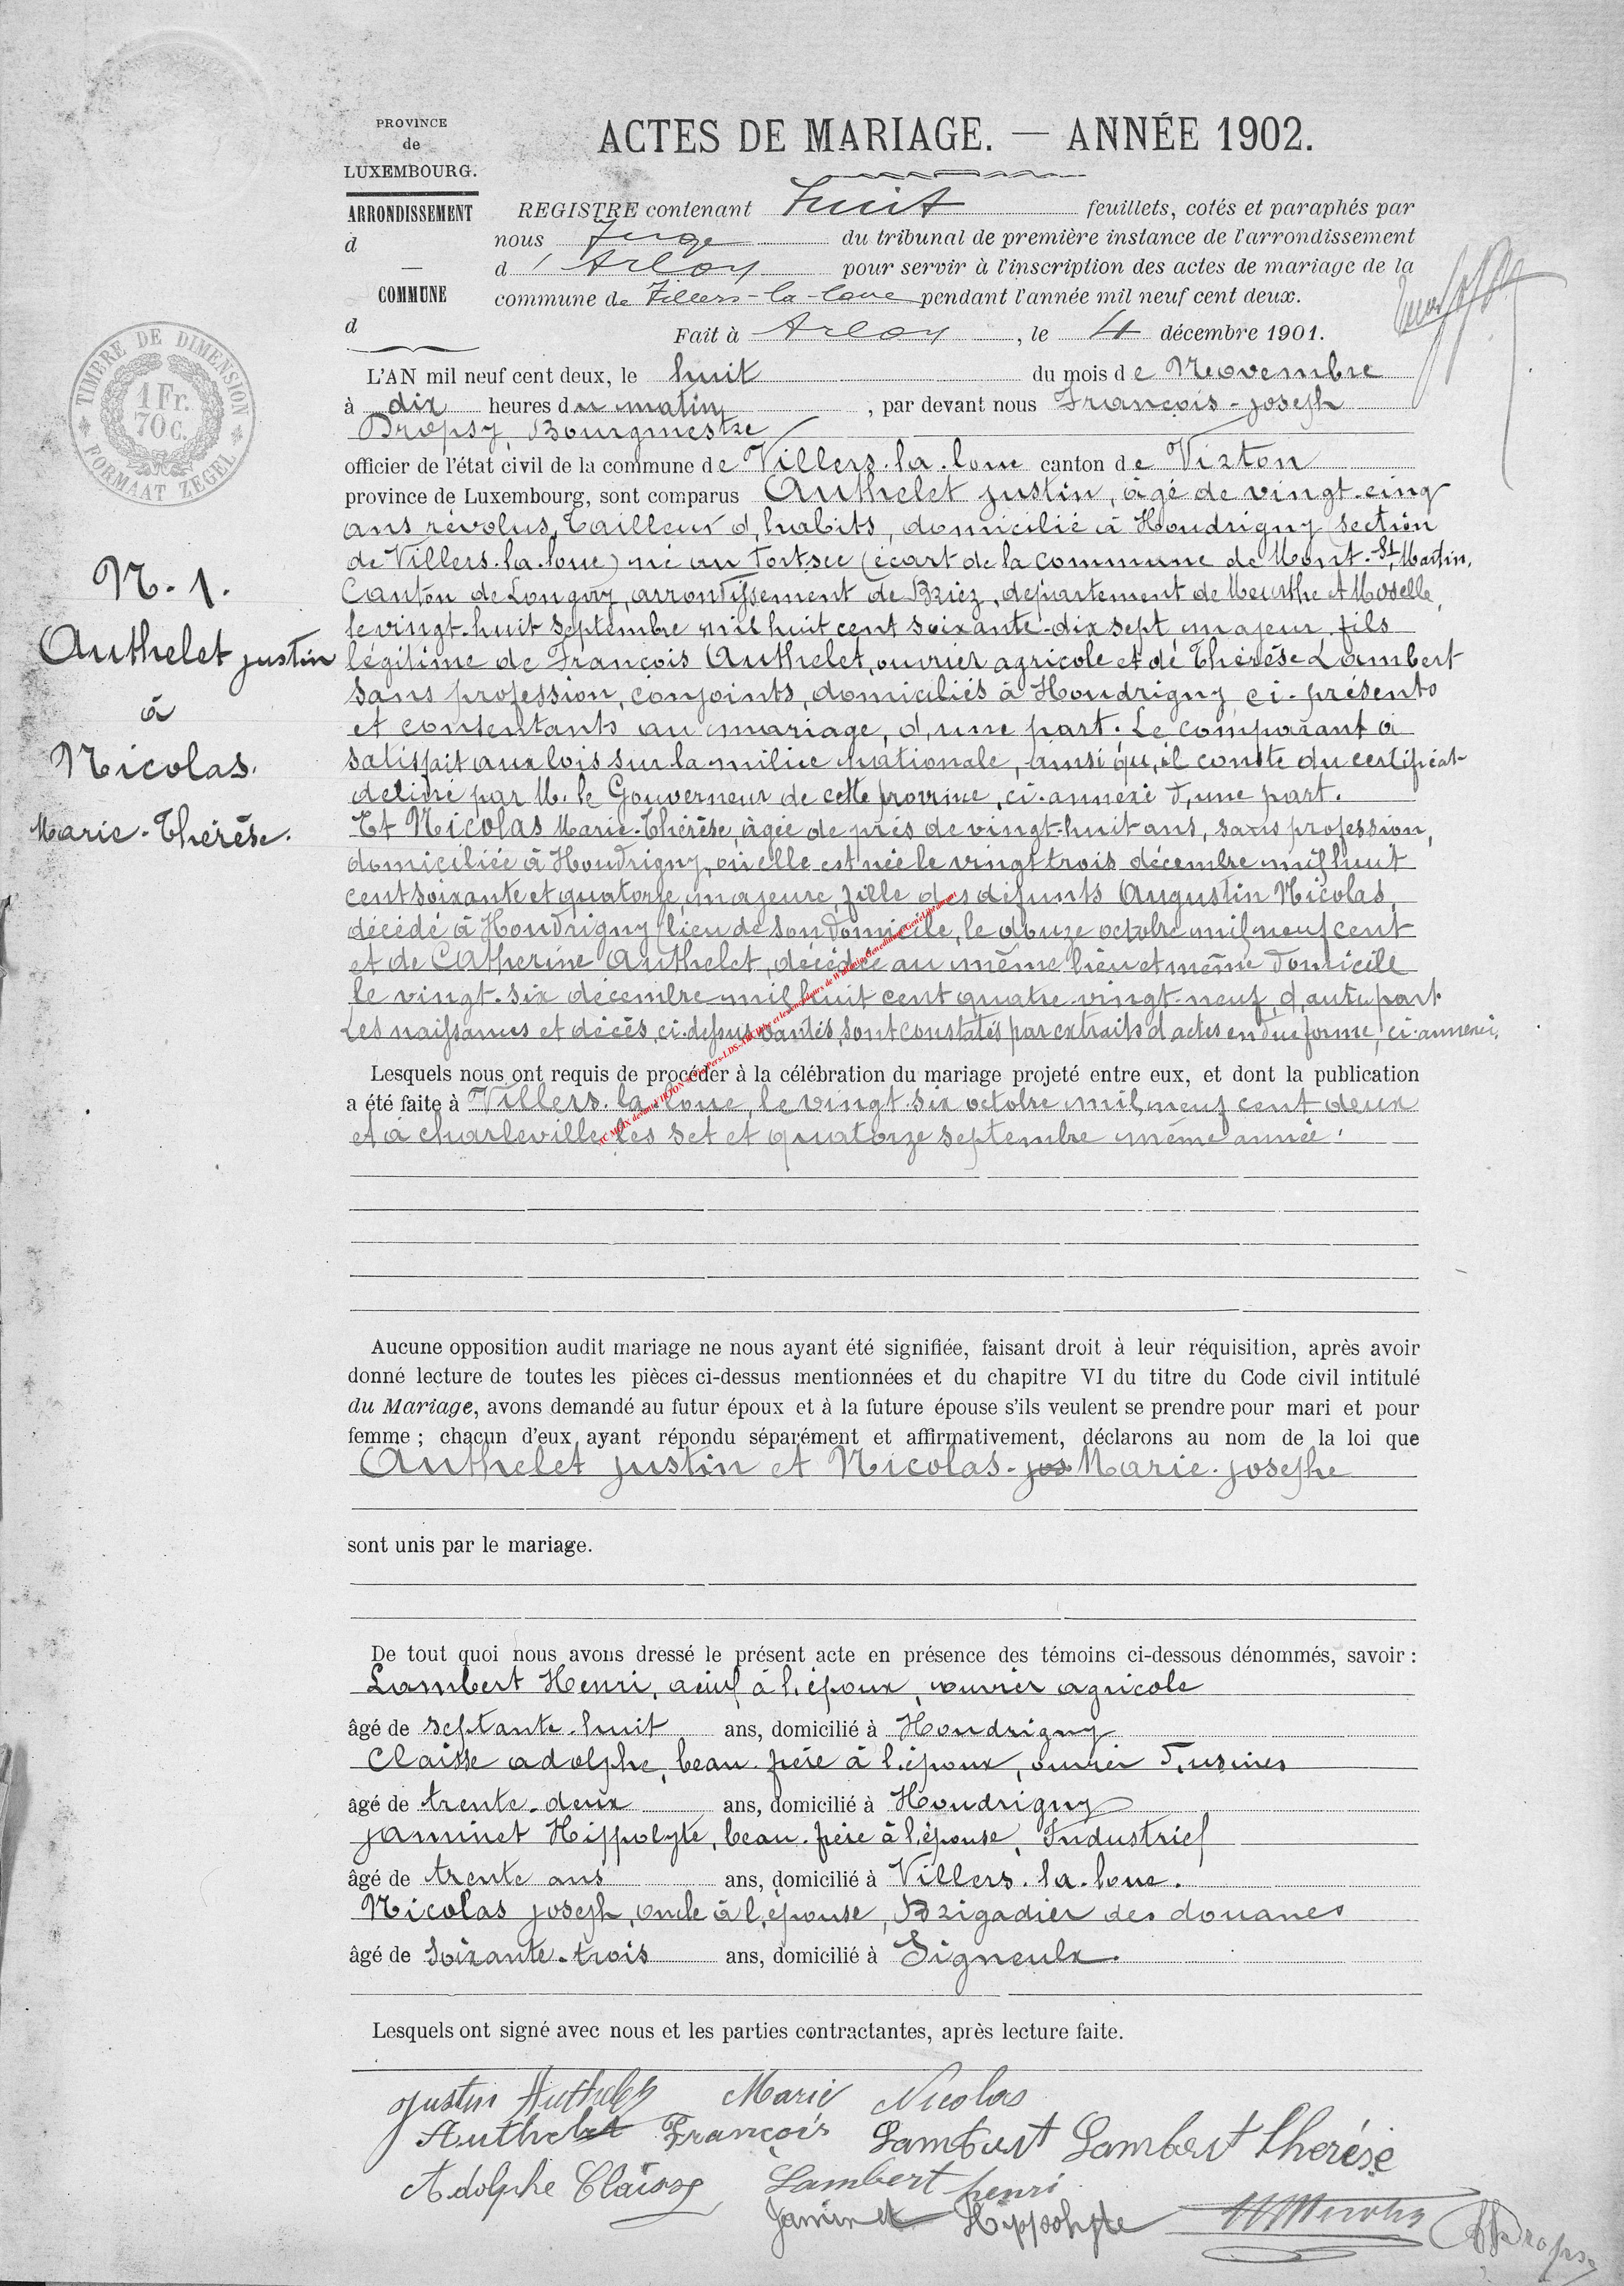 PROVINCE
de
LUXEMBOURG.
ARRONDISSEMENT
d
COMMUNE
d
ACTES DE MARIAGE. — ANNÉE 1902.
REGISTRE contenant huit feuillets, cotés et paraphés par
nous Juge du tribunal de première instance de l'arrondissement
d'Arlon pour servir à l'inscription des actes de mariage de la
commune de Villers-la-loue pendant l'année mil neuf cent deux.
Fait à Arlon, le 4 décembre 1901.
TIMBRE DE DIMENSION
1 Fr.
70 C.
FORMAAT ZEGEL
L'AN mil neuf cent deux, le huit du mois de Novembre
à dix heures du matin, par devant nous François-joseph
Dropsy, Bourgmestre
officier de l'état civil de la commune de Villers.la.loue canton de Virton
province de Luxembourg, sont comparus Authelet justin, âgé de vingt-cinq
ans révolus, tailleur d,habits, domicilié à Houdrigny section
de Villers.la.loue) né au Tortsec (écart de la commune de Mont-St Martin,
Canton de Longwy, arrondissement de Briez, département de Meurthe et Moselle,
le vingt-huit septembre mil huit cent soixante-dix sept majeur, fils
légitime de François Authelet, ouvrier agricole et de Thérèse Lambert
sans profession, conjoints, domiciliés à Houdrigny ci-présents
et consentants au mariage, d,une part. Le comparant a
satisfait aux lois sur la milice nationale, ainsi qu,il conste du certificat
delivré par M. le Gouverneur de cette province, ci-annexé d,une part.
Et Nicolas Marie-Thérèse, âgée de près de vingt-huit ans, sans profession,
domiciliée à Houdrigny, où elle est née le vingt trois décembre mil huit
cent soixante et quatorze, majeure, fille des défunts Augustin Nicolas,
décédé à Houdrigny lieu de son domicile, le douze octobre mil neuf cent
et de Catherine Authelet, décédée au même lieu et même domicile
le vingt-six décembre mil huit cent quatre-vingt-neuf, d,autre part.
Les naissances et décès, ci-dessus vantés, sont constatés par extraits d actes en due forme, ci-annexés.
N. 1.
Authelet justin
à
Nicolas.
Marie-Thérèse.
Lesquels nous ont requis de procéder à la célébration du mariage projeté entre eux, et dont la publication
a été faite à Villers.la.loue, le vingt-six octobre mil neuf cent deux
et à charleville les set et quatorze septembre même année.
Aucune opposition audit mariage ne nous ayant été signifiée, faisant droit à leur réquisition, après avoir
donné lecture de toutes les pièces ci-dessus mentionnées et du chapitre VI du titre du Code civil intitulé
du Mariage, avons demandé au futur époux et à la future épouse s'ils veulent se prendre pour mari et pour
femme ; chacun d'eux ayant répondu séparément et affirmativement, déclarons au nom de la loi que
Authelet justin et Nicolas-jos Marie-josephe
sont unis par le mariage.
De tout quoi nous avons dressé le présent acte en présence des témoins ci-dessous dénommés, savoir :
Lambert Henri, aïeul à l,époux, ouvrier agricole
âgé de septante-huit ans, domicilié à Houdrigny
Claisse adolphe, beau-frère à l,époux, ouvrier d,usines
âgé de trente-deux ans, domicilié à Houdrigny
jaminet Hippolyte, beau-frère à l,épouse, Industriel
âgé de trente ans ans, domicilié à Villers.la.loue.
Nicolas joseph, oncle à l,épouse, Brigadier des douanes
âgé de soixante-trois ans, domicilié à Signeulx.
Lesquels ont signé avec nous et les parties contractantes, après lecture faite.
justin Authelet Marie Nicolas
Authelet François Lambert Lambert thérèse
Adolphe Claisse Lambert henri
Jaminet Hippolyte Nicolas Dropsy